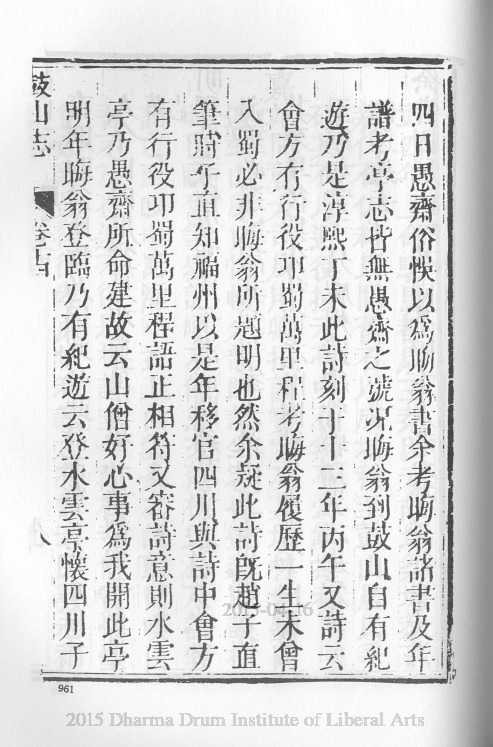 四日愚齋俗悞以爲晦翁書余考晦翁諸書及年
譜考亭志皆無愚齋之號况晦翁到鼓山自有紀
遊乃是淳熙丁未此詩刻于十三年丙午又詩云
會方有行役卭蜀萬里程考晦翁履歷一生未曾
入蜀必非晦翁所題明也然余疑此詩旣趙子直
筆時子直知福州以是年移官四川與詩中會方
有行役卭蜀萬里程語正相符又審詩意則水雲
亭乃愚齋所命建故云山僧好心事爲我開此亭
明年晦翁登臨乃有紀遊云登水雲亭懷四川子
鼓山志
卷十四
八
961
2015-04-16
2015 Dharma Drum Institute of Liberal Arts